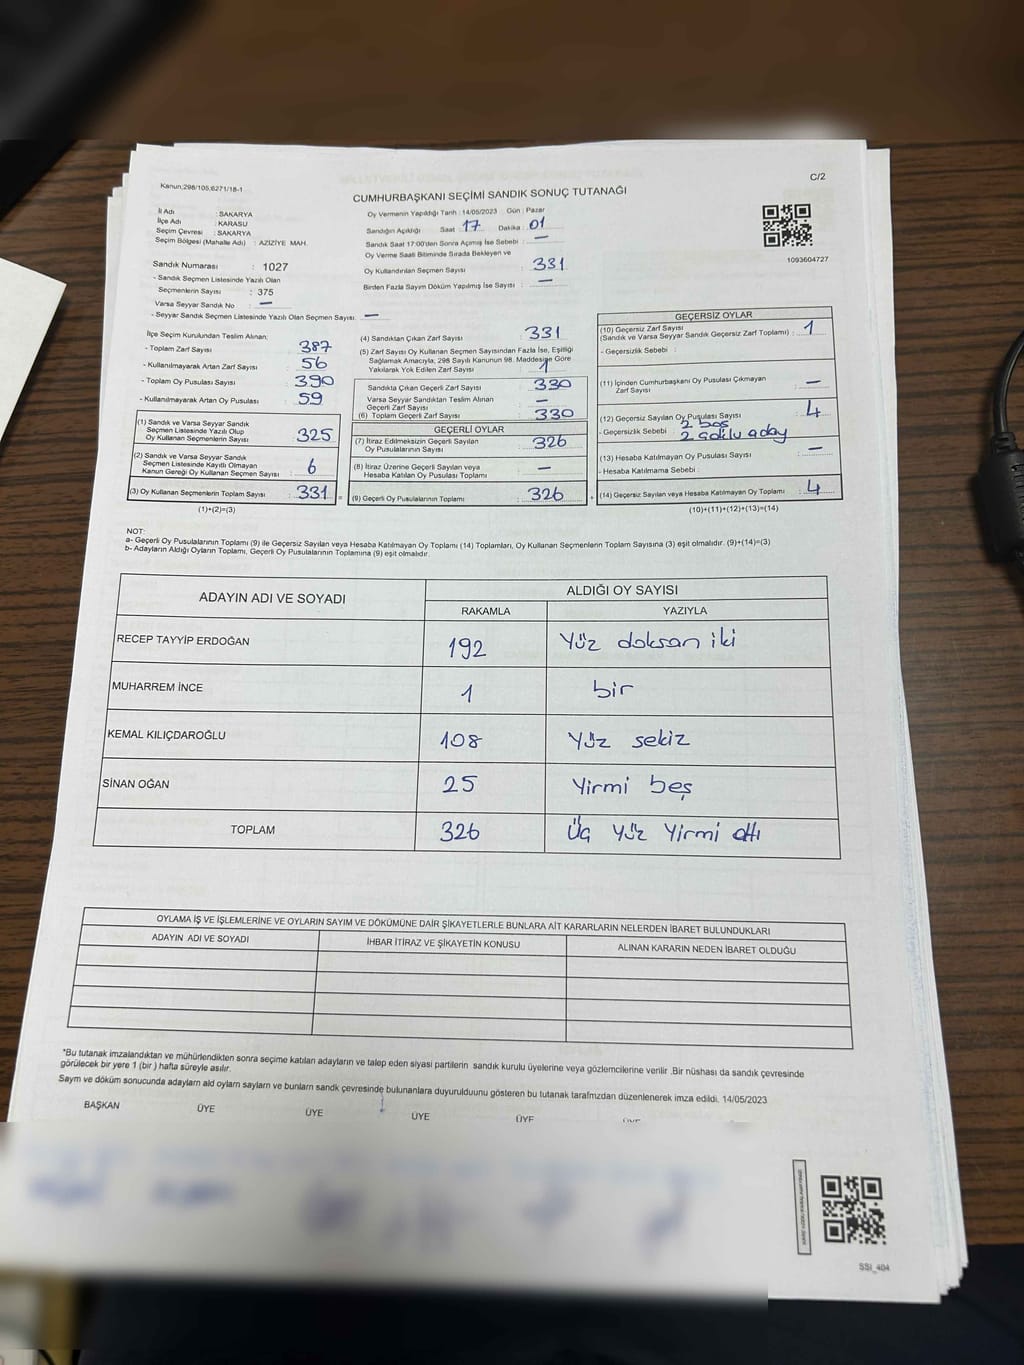 Kanun;298/105;6271/18-1
C/2
CUMHURBAŞKANI SEÇİMİ SANDIK SONUÇ TUTANAĞI
İl Adı : SAKARYA
İlçe Adı : KARASU
Seçim Çevresi : SAKARYA
Seçim Bölgesi (Mahalle Adı) : AZİZİYE MAH.
Sandık Numarası : 1027
- Sandık Seçmen Listesinde Yazılı Olan
Seçmenlerin Sayısı : 375
Varsa Seyyar Sandık No : —
- Seyyar Sandık Seçmen Listesinde Yazılı Olan Seçmen Sayısı : —
Oy Vermenin Yapıldığı Tarih : 14/05/2023 Gün : Pazar
Sandığın Açıldığı Saat : 17 Dakika : 01
Sandık Saat 17:00'den Sonra Açılmış İse Sebebi : —
Oy Verme Saati Bitiminde Sırada Bekleyen ve
Oy Kullandırılan Seçmen Sayısı : 331
Birden Fazla Sayım Döküm Yapılmış İse Sayısı : —
1093604727
İlçe Seçim Kurulundan Teslim Alınan;
- Toplam Zarf Sayısı : 387
- Kullanılmayarak Artan Zarf Sayısı : 56
- Toplam Oy Pusulası Sayısı : 390
- Kullanılmayarak Artan Oy Pusulası : 59
(1) Sandık ve Varsa Seyyar Sandık
Seçmen Listesinde Yazılı Olup
Oy Kullanan Seçmenlerin Sayısı : 325
(2) Sandık ve Varsa Seyyar Sandık
Seçmen Listesinde Kayıtlı Olmayan
Kanun Gereği Oy Kullanan Seçmen Sayısı : 6
(3) Oy Kullanan Seçmenlerin Toplam Sayısı : 331
(1)+(2)=(3)
(4) Sandıktan Çıkan Zarf Sayısı : 331
(5) Zarf Sayısı Oy Kullanan Seçmen Sayısından Fazla İse, Eşitliği
Sağlamak Amacıyla; 298 Sayılı Kanunun 98. Maddesine Göre
Yakılarak Yok Edilen Zarf Sayısı : 1
Sandıkta Çıkan Geçerli Zarf Sayısı : 330
Varsa Seyyar Sandıktan Teslim Alınan
Geçerli Zarf Sayısı : —
(6) Toplam Geçerli Zarf Sayısı : 330
GEÇERLİ OYLAR
(7) İtiraz Edilmeksizin Geçerli Sayılan
Oy Pusulalarının Sayısı : 326
(8) İtiraz Üzerine Geçerli Sayılan veya
Hesaba Katılan Oy Pusulası Toplamı : —
(9) Geçerli Oy Pusulalarının Toplamı : 326
GEÇERSİZ OYLAR
(10) Geçersiz Zarf Sayısı
(Sandık ve Varsa Seyyar Sandık Geçersiz Zarf Toplamı) : 1
- Geçersizlik Sebebi :
(11) İçinden Cumhurbaşkanı Oy Pusulası Çıkmayan
Zarf Sayısı : —
(12) Geçersiz Sayılan Oy Pusulası Sayısı : 4
- Geçersizlik Sebebi : 2 boş
2 çoklu aday
(13) Hesaba Katılmayan Oy Pusulası Sayısı : —
- Hesaba Katılmama Sebebi :
(14) Geçersiz Sayılan veya Hesaba Katılmayan Oy Toplamı : 4
(10)+(11)+(12)+(13)=(14)
NOT:
a- Geçerli Oy Pusulalarının Toplamı (9) ile Geçersiz Sayılan veya Hesaba Katılmayan Oy Toplamı (14) Toplamları, Oy Kullanan Seçmenlerin Toplam Sayısına (3) eşit olmalıdır. (9)+(14)=(3)
b- Adayların Aldığı Oyların Toplamı, Geçerli Oy Pusulalarının Toplamına (9) eşit olmalıdır.
ADAYIN ADI VE SOYADI
ALDIĞI OY SAYISI
RAKAMLA YAZIYLA
RECEP TAYYİP ERDOĞAN 192 Yüz doksan iki
MUHARREM İNCE 1 bir
KEMAL KILIÇDAROĞLU 108 Yüz sekiz
SİNAN OĞAN 25 Yirmi beş
TOPLAM 326 Üç Yüz Yirmi altı
OYLAMA İŞ VE İŞLEMLERİNE VE OYLARIN SAYIM VE DÖKÜMÜNE DAİR ŞİKAYETLERLE BUNLARA AİT KARARLARIN NELERDEN İBARET BULUNDUKLARI
ADAYIN ADI VE SOYADI İHBAR İTİRAZ VE ŞİKAYETİN KONUSU ALINAN KARARIN NEDEN İBARET OLDUĞU
*Bu tutanak imzalandıktan ve mühürlendikten sonra seçime katılan adayların ve talep eden siyasi partilerin sandık kurulu üyelerine veya gözlemcilerine verilir .Bir nüshası da sandık çevresinde
görülecek bir yere 1 (bir ) hafta süreyle asılır.
Saym ve döküm sonucunda adayların ald oyların sayların ve bunların sandk çevresinde bulunanlara duyurulduunu gösteren bu tutanak tarafmzdan düzenlenerek imza edildi. 14/05/2023
BAŞKAN ÜYE ÜYE ÜYE ÜYE ÜYE
SSI_404